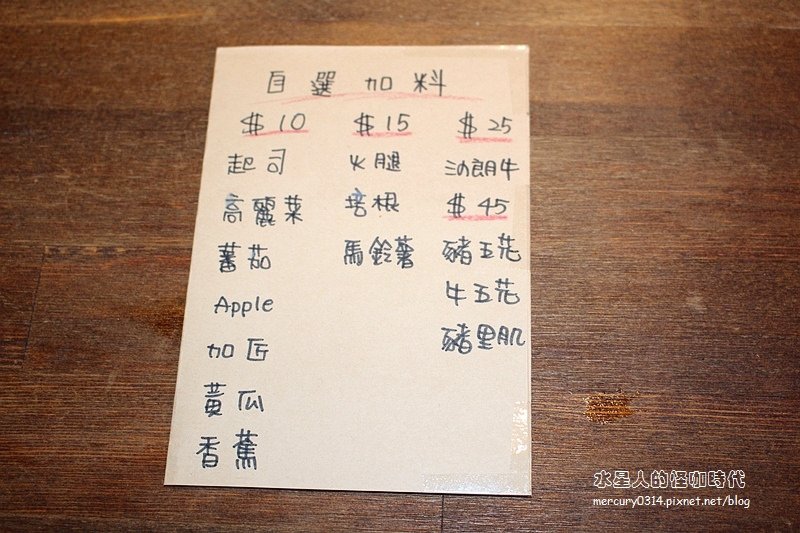 自選加料
$10
起司
高麗菜
蕃茄
Apple
加匠
黃瓜
香蕉
$15
火腿
培根
馬鈴薯
$25
沙朗牛
$45
豬五花
牛五花
豬里肌
水星人的怪咖時代
mercury0314.pixnet.net/blog